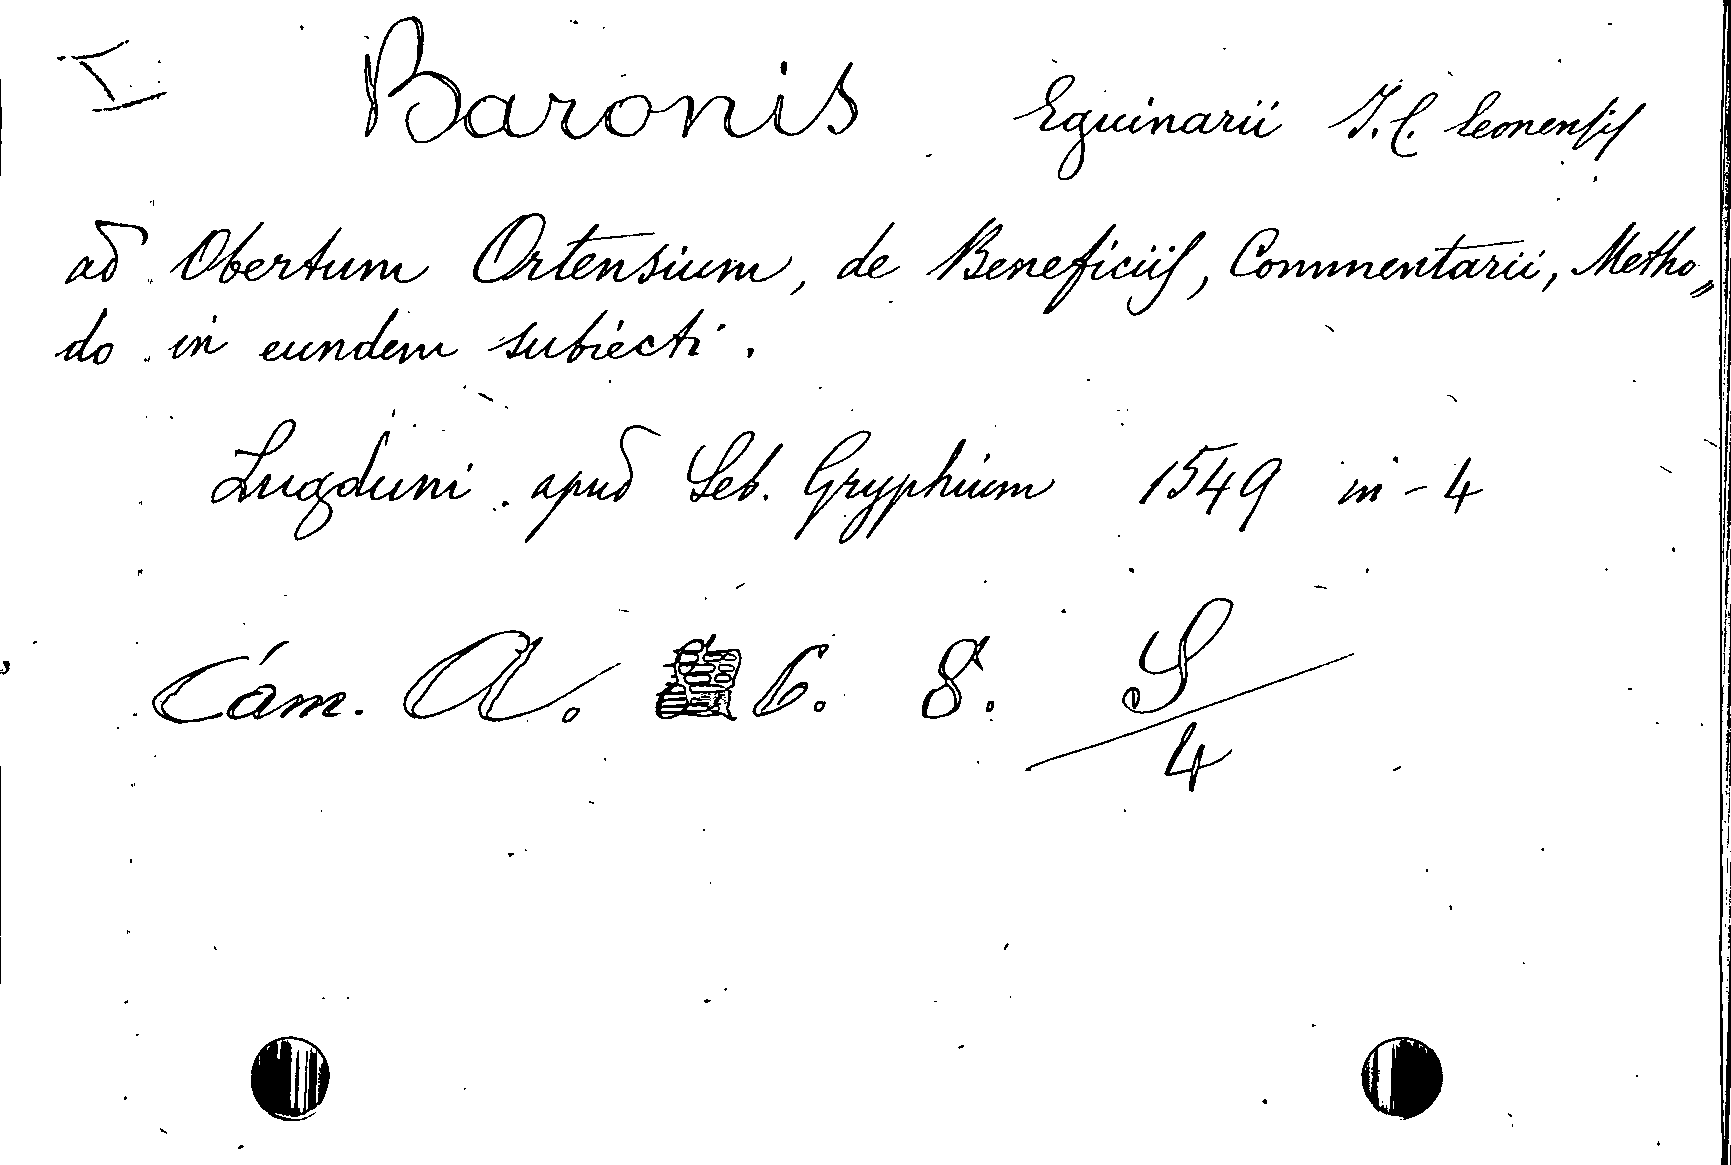 I Baronis Eguinarii J. C. Leonensis
ad Obertum Ortensium, de Beneficiis, Commentarii, Metho„
do in eundem subiecti.
Lugduni apud Seb. Gryphium 1549 in-4
Cám. A. 6. 8. S/4